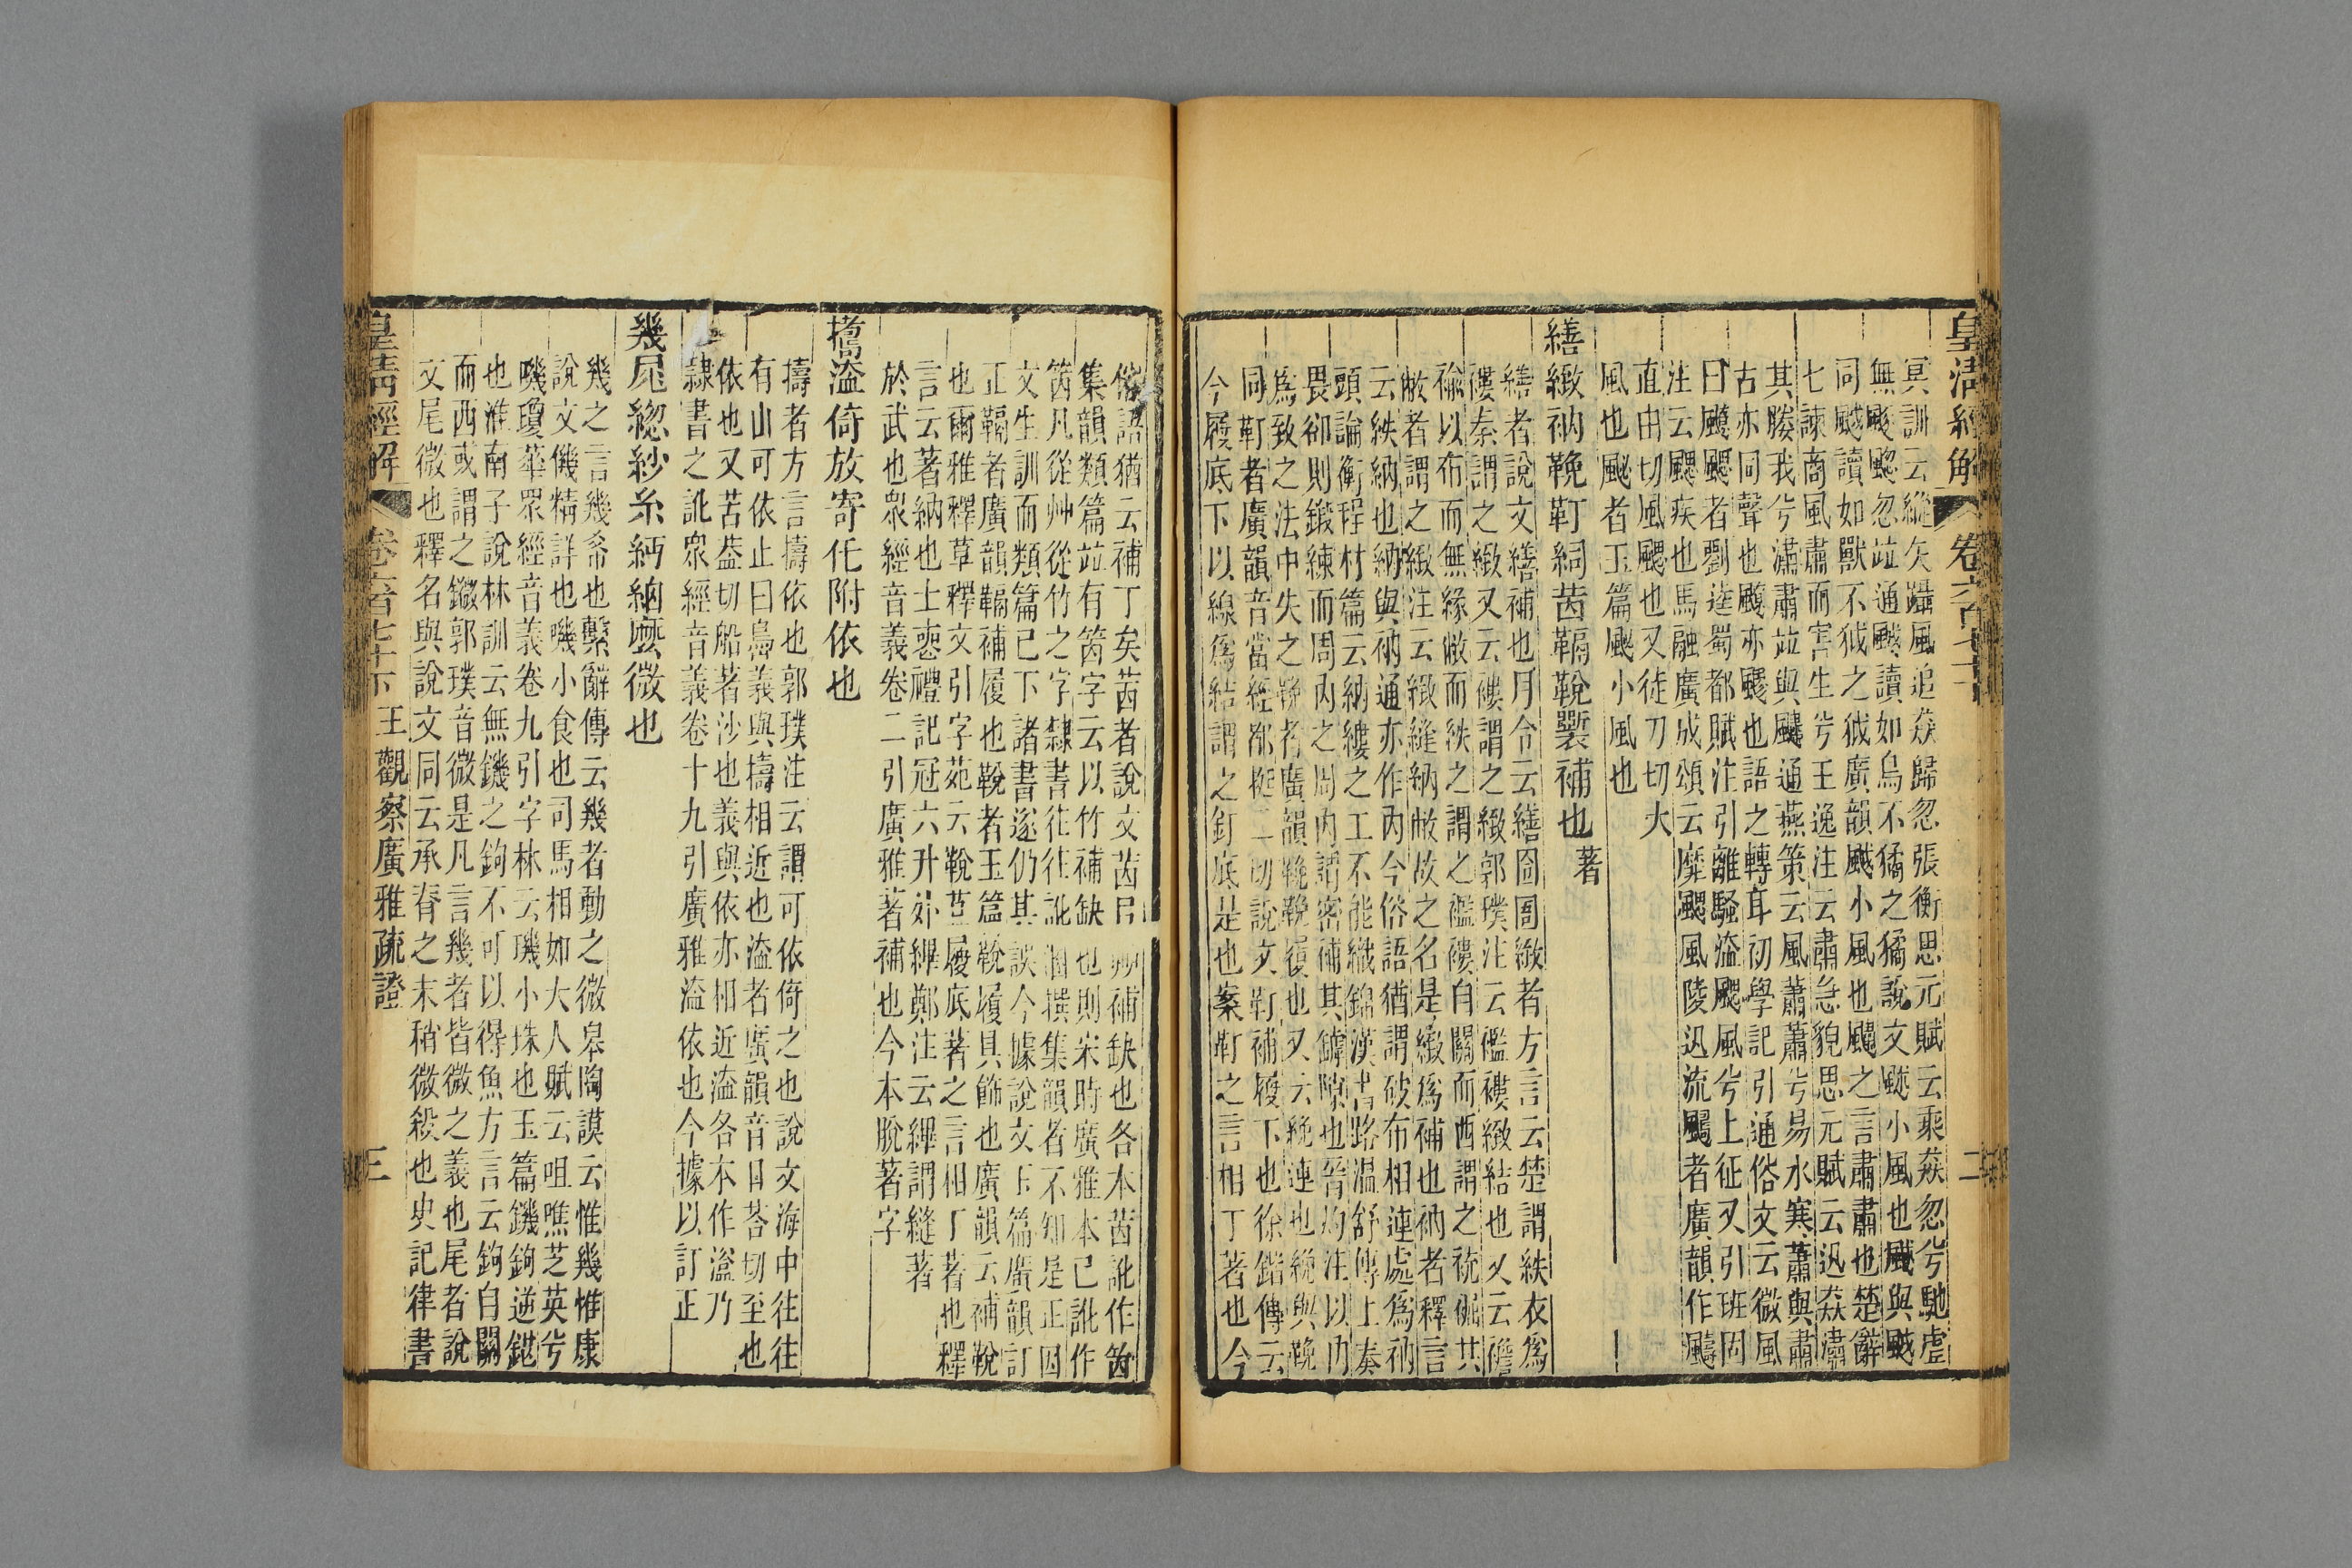 皇清經解 卷六百七十 二
冥訓云縱矢躡風追猋歸忽張衡思元賦云乘猋忽兮馳虛
無颷䬍忽竝通䬂讀如烏不㺒之㺒說文䬂小風也颳與䬂
同䬂讀如獸不狘之狘廣韻䬂小風也飋之言肅肅也楚辭
七諫商風肅而害生兮王逸注云肅急貌思元賦云迅猋潚
其媵我兮潚肅竝與飋通燕策云風蕭蕭兮易水寒蕭與肅
古亦同聲也飉亦飋也語之轉耳初學記引通俗文云微風
曰飉颸者劉逵蜀都賦注引離騷溘颸風兮上征又引班固
注云颸疾也馬融廣成頌云靡颸風陵迅流䬙者廣韻作䬞
直由切風颸也又徒刀切大
風也䬀者玉篇䬀小風也
繕緻衲鞔靪絧茵䩹䩱褩補也 著
繕者說文繕補也月令云繕囹圄緻者方言云楚謂紩衣爲
褸秦謂之緻又云褸謂之緻郭璞注云襤褸緻結也又云襜
褕以布而無緣敝而紩之謂之襤褸自關而西謂之䘪裾其
敝者謂之緻注云緻縫納敝故之名是緻爲補也衲者釋言
云紩納也納與衲通亦作內今俗語猶謂破布相連處爲衲
頭論衡程材篇云納縷之工不能織錦漢書路溫舒傳上奏
畏卻則鍛練而周內之周內謂密補其鏬隙也晉灼注以內
爲致之法中失之鞔者廣韻鞔鞔履也又云絻連也絻與鞔
同靪者廣韻音當經都挺二切說文靪補履下也徐鍇傳云
今履底下以線爲結謂之釘底是也案靪之言相丁著也今
俗語猶云補丁矣茵者說文茵以艸補缺也各本茵訛作笝
集韻類篇竝有笝字云以竹補缺也則宋時廣雅本已訛作
笝凡從艸從竹之字隸書往往訛溷撰集韻者不知是正因
文生訓而類篇已下諸書遂仍其誤今據說文玉篇廣韻訂
正䩹者廣韻䩹補履也䩱者玉篇䩱履具飾也廣韻云補䩱
也爾雅釋草釋文引字苑云䩱苴履底著之言相丁著也釋
言云著納也士喪禮記冠六升外縪鄭注云縪謂縫著
於武也衆經音義卷二引廣雅著補也今本脫著字
擣溢倚放寄仛附依也
擣者方言擣依也郭璞注云謂可依倚之也說文海中往往
有山可依止曰島義與擣相近也溘者廣韻音口荅切至也
依也又苦盍切船著沙也義與依亦相近溘各本作溢乃
隸書之訛衆經音義卷十九引廣雅溘依也今據以訂正
幾㞑總紗糸緆納麼微也
幾之言幾希也繫辭傳云幾者動之微皋陶謨云惟幾惟康
說文僟精詳也嘰小食也司馬相如大人賦云咀噍芝英兮
嘰瓊華衆經音義卷九引字林云璣小珠也玉篇鐖鉤逆鋩
也淮南子說林訓云無鐖之鉤不可以得魚方言云鉤自關
而西或謂之鐖郭璞音微是凡言幾者皆微之義也尾者說
文尾微也釋名與說文同云承脊之末稍微殺也史記律書
皇清經解 卷六百七十下 王觀察廣雅疏證 三